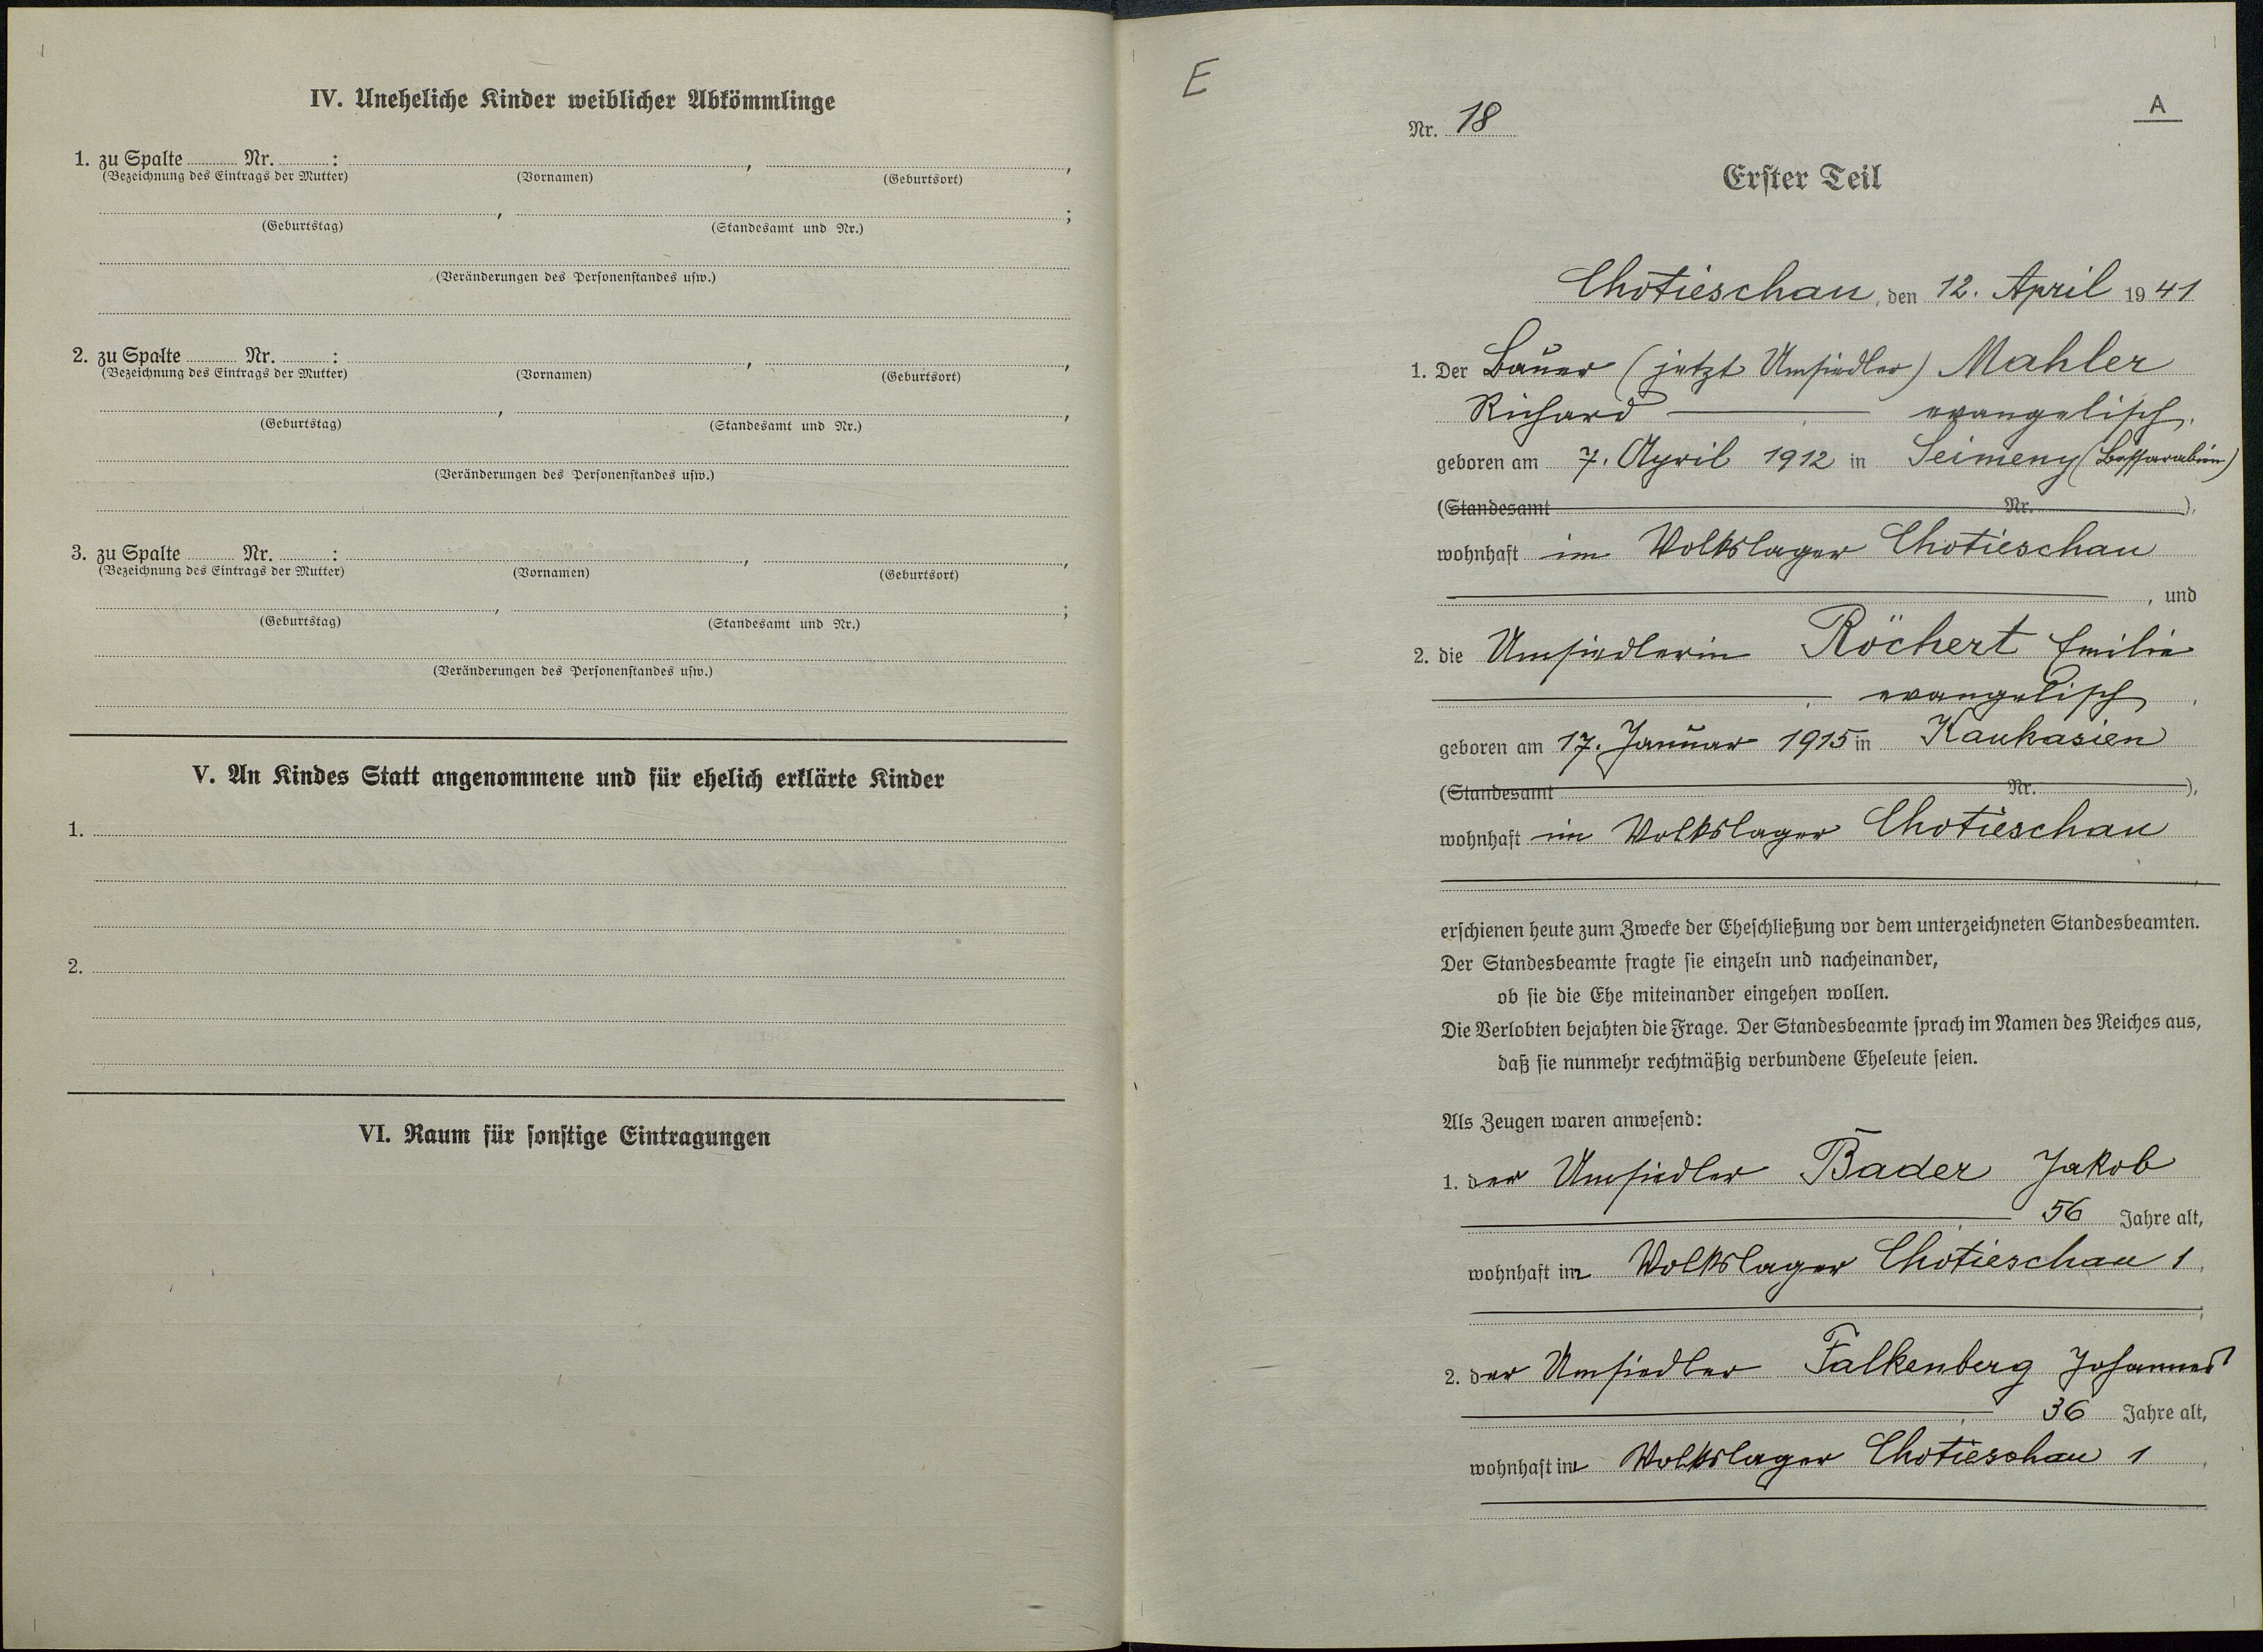 IV. Uneheliche Kinder weiblicher Abkömmlinge
1. zu Spalte Nr. : , ,
(Bezeichnung des Eintrags der Mutter) (Vornamen) (Geburtsort)
, ;
(Geburtstag) (Standesamt und Nr.)
(Veränderungen des Personenstandes usw.)
2. zu Spalte Nr. : , ,
(Bezeichnung des Eintrags der Mutter) (Vornamen) (Geburtsort)
, ,
(Geburtstag) (Standesamt und Nr.)
(Veränderungen des Personenstandes usw.)
3. zu Spalte Nr. : , ,
(Bezeichnung des Eintrags der Mutter) (Vornamen) (Geburtsort)
, ;
(Geburtstag) (Standesamt und Nr.)
(Veränderungen des Personenstandes usw.)
V. An Kindes Statt angenommene und für ehelich erklärte Kinder
1.
2.
VI. Raum für sonstige Eintragungen
E
A
Nr. 18
Erster Teil
Chotieschau, den 12. April 1941
1. Der Bauer (jetzt Umsiedler) Mahler
Richard evangelisch,
geboren am 7. April 1912 in Seimeny (Bessarabien)
(Standesamt Nr. ),
wohnhaft im Volkslager Chotieschau
, und
2. die Umsiedlerin Röchert Emilie
, evangelisch,
geboren am 17. Januar 1915 in Kaukasien
(Standesamt Nr. ),
wohnhaft im Volkslager Chotieschau
,
erschienen heute zum Zwecke der Eheschließung vor dem unterzeichneten Standesbeamten.
Der Standesbeamte fragte sie einzeln und nacheinander,
ob sie die Ehe miteinander eingehen wollen.
Die Verlobten bejahten die Frage. Der Standesbeamte sprach im Namen des Reiches aus,
daß sie nunmehr rechtmäßig verbundene Eheleute seien.
Als Zeugen waren anwesend:
1. der Umsiedler Bader Jakob
, 56 Jahre alt,
wohnhaft im Volkslager Chotieschau 1,
;
2. der Umsiedler Falkenberg Johannes
, 36 Jahre alt,
wohnhaft im Volkslager Chotieschau 1,